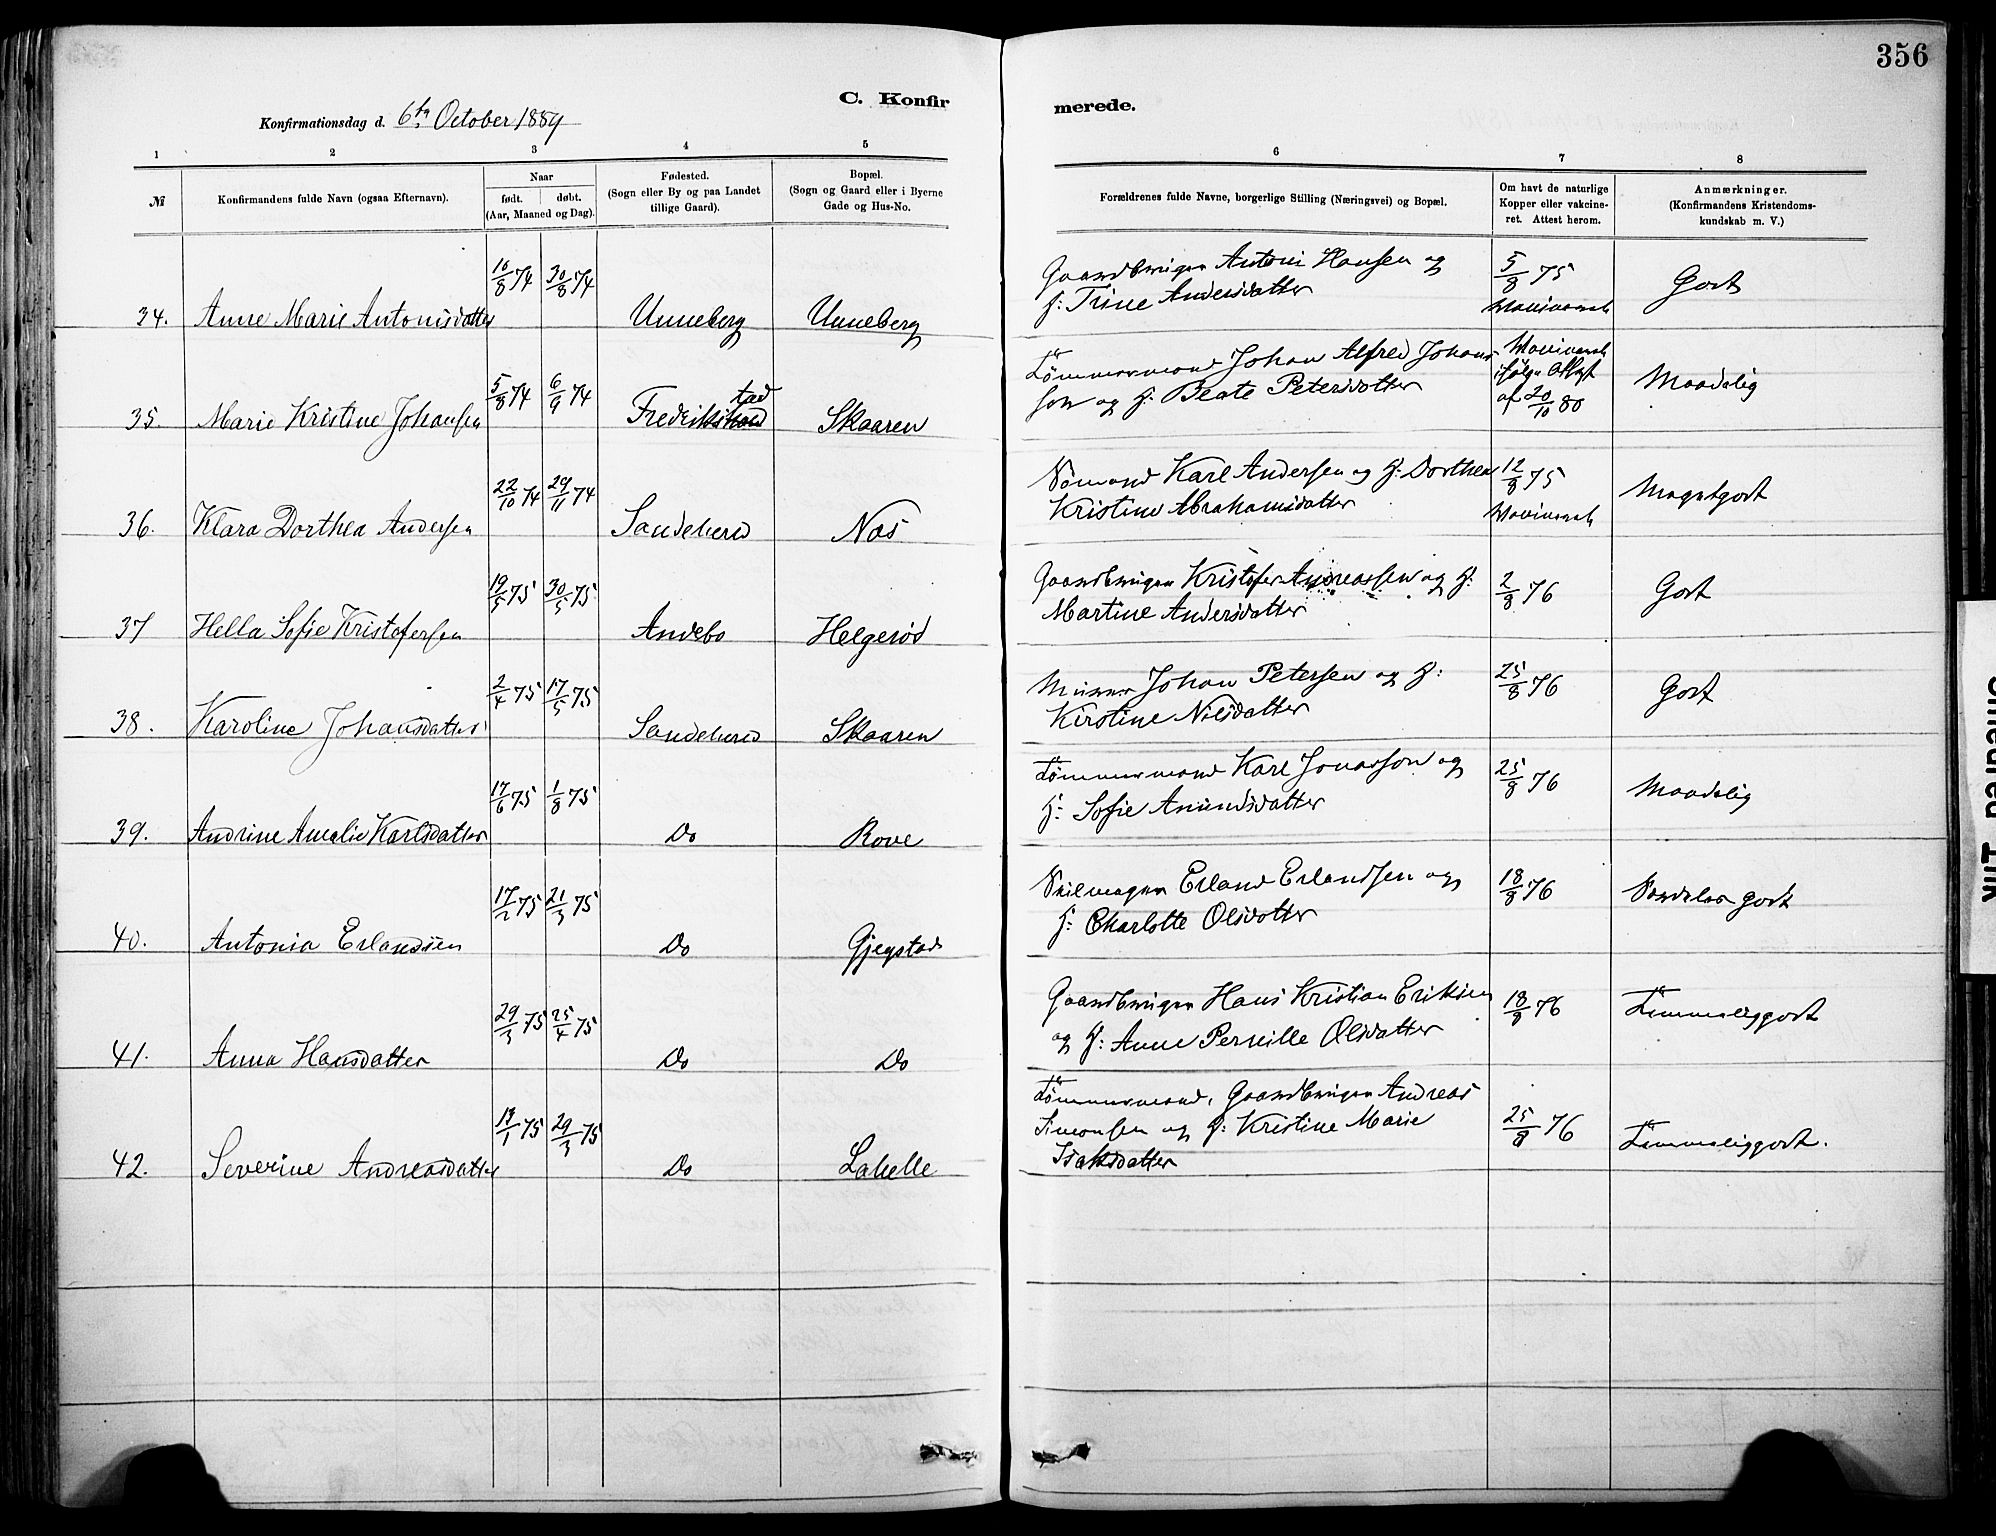 356
C. Konfir
merede.
Konfirmationsdag d. 6te October 1889
1 2 3 4 5 6 7 8
№
Konfirmandens fulde Navn (ogsaa Efternavn).
Naar
født. døbt.
(Aar, Maaned og Dag).
Fødested.
(Sogn eller By og paa Landet
tillige Gaard).
Bopæl.
(Sogn og Gaard eller i Byerne
Gade og Hus-No.
Forældrenes fulde Navne, borgerlige Stilling (Næringsvei) og Bopæl.
Om havt de naturlige
Kopper eller vakcine-
ret. Attest herom.
Anmærkninger.
(Konfirmandens Kristendoms-
kundskab m. V.)
34. Anne Marie Antonisdatter 16/8 74 30/8 74 Unneberg Unneberg
Gaardbruger Antoni Hansen og
H: Trine Andersdatter
5/8 75
Godt
35. Marie Kristine Johansen 5/8 74 6/9 74 Fredrikstad Skaaren
Tømmermand Johan Alfred Johans
son og H: Beate Petersdatter
ifølge Attest
af 20/10 80
Maadelig
36. Klara Dorthea Andersen 22/10 74 29/11 74 Sandeherd Nes
Sømand Karl Andersen og H: Dorthea
Kristine Abrahamsdatter
12/8 75
Megetgodt
37 Hella Sofie Kristofersen 19/5 75 30/5 75 Andebo Helgerød
Gaardbruger Kristofer Andreassen og H:
Martine Andersdatter
2/8 76
Godt
38. Karoline Johansdatter 2/4 75 17/5 75 Sandeherd Skaaren
Murer Johan Petersen og H:
Kirstine Nilsdatter
25/8 76
Godt
39. Andrine Amalie Karlsdatter 17/6 75 1/8 75 Do Rove
Tømmermand Karl Jonasson og
H: Sofie Amundsdatter
25/8 76
Maadelig
40. Antonia Erlandsen 17/2 75 21/3 75 Do Gjegstad
Seilmager Erland Erlandsen og
H: Charlotte Olsdatter
18/8 76
Særdeles godt
41. Anna Hansdatter 29/3 75 25/4 75 Do Do
Gaardbruger Hans Kristian Eriksen
og H: Anne Pernille Olsdatter
18/8 76
Temmeliggodt
42. Severine Andreasdatter 75 29/3 75 Do Lahelle
Tømmermand, Gaardbruger Andreas
Simonsen og H: Kristine Marie
Isaksdatter
25/8 76
Temmeliggodt.